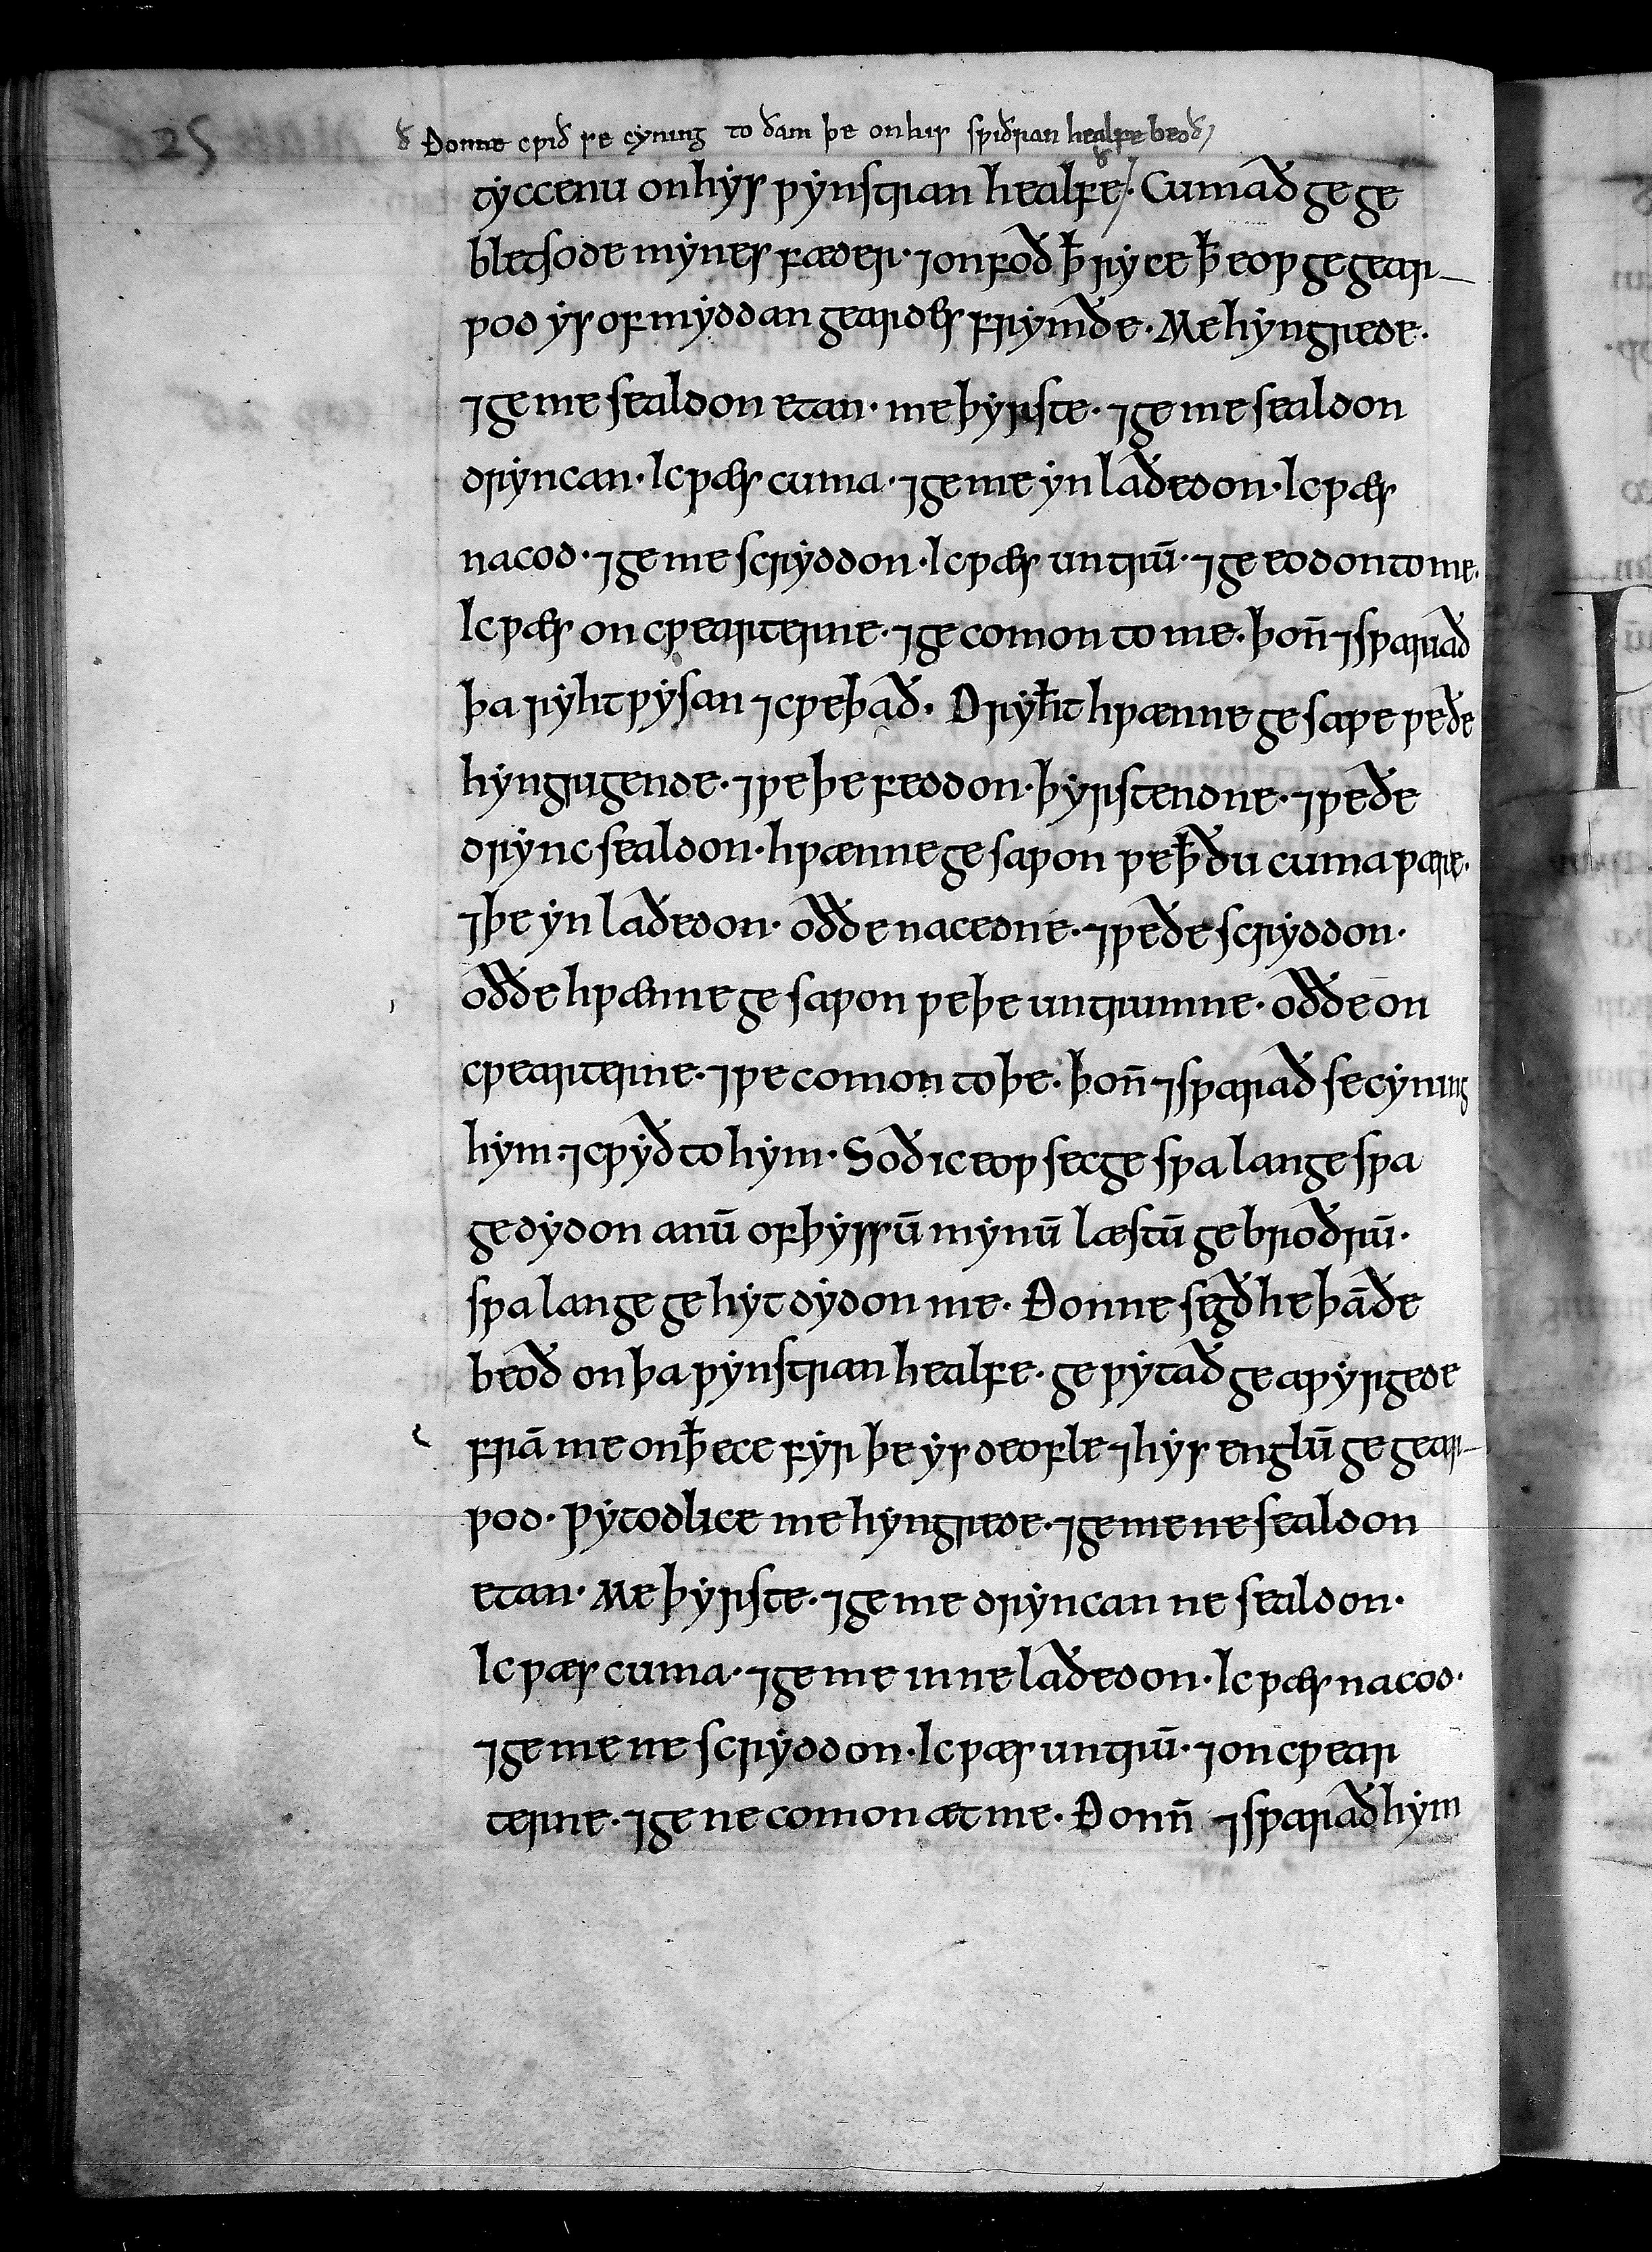 25
ð Ðonne cƿið se cyning to ðam þe on his sƿiðran healfe beoð
tẏccenu on hẏs ƿẏnstran healfe. Cumað ge ge
bletsode mẏnes fæder· ⁊ onfoð ꝥ rẏce ꝥ eoƿ gegear-
ƿod ẏs of mẏddan geardes frẏmðe. Me hẏngrede.
⁊ ge me sealdon etan· me þẏrste· ⁊ ge me sealdon
drẏncan· Ic ƿæs cuma· ⁊ ge me ẏn laðedon· Ic ƿæs
nacod· ⁊ ge me scrẏddon· Ic ƿæs untrū· ⁊ ge eodon to me.
Ic ƿæs on cƿearterne· ⁊ ge comon to me. þoñ ⁊sƿariað
þa rẏhtƿẏsan ⁊ cƿeþað. Drẏħt hƿænne gesaƿe ƿe ðe
hẏngrigende· ⁊ ƿe þe feddon· þẏrstendne· ⁊ ƿe ðe
drẏnc sealdon· hƿænne gesaƿon ƿe ꝥ ðu cuma ƿære.
⁊ þe ẏn laðedon· oððe nacedne· ⁊ ƿe ðe scrẏddon·
oððe hƿænne gesaƿon ƿe þe untrumne· oððe on
cƿearterne· ⁊ ƿe comon to þe. þoñ ⁊sƿarað se cẏning
hẏm· ⁊ cƿẏð to hẏm· Soð ic eoƿ secge sƿa lange sƿa
ge dẏdon anū of þẏssū mẏnū læstū gebroðrū·
sƿa lange ge hẏt dẏdon me. Ðonne segð he þā ðe
beoð on þa ƿẏnstran healfe· geƿẏtað ge aƿẏrgede
frā me on ꝥ ece fẏr þe ẏs deofle ⁊ hẏs englū gegear-
ƿod· Ƿẏtodlice me hẏngrede· ⁊ ge me ne sealdon
etan· Me þẏrste· ⁊ ge me drẏncan ne sealdon.
Ic ƿæs cuma· ⁊ ge me in ne laðedon· Ic ƿæs nacod·
⁊ ge me ne scrẏddon· Ic ƿæs untrū· ⁊ on cƿear
terne· ⁊ ge ne comon æt me. Ðonñ ⁊sƿariað hẏm